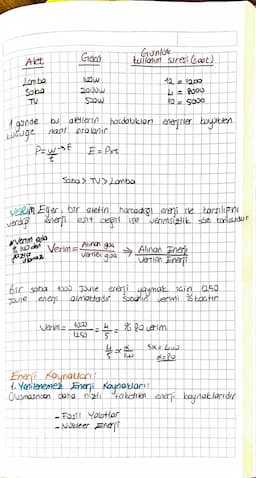 Alet Gücü Günlük kullanım süresi (saat)
Lamba 100W 12 = 1200
Soba 2000W 4 = 8000
TV 500W 10 = 5000
1 günde bu aletlerin harcadıkları enerjiler büyükten
küçüğe nasıl sıralanır
P = W → E / t E = P×t
Soba > TV > Lamba
Verim Eğer, bir aletin harcadığı enerji ile
verdiği enerji eşit değil ise verimsizlik söz konusudur
Verim = Alınan güç / Verilen güç ⇒ Alınan Enerji / Verilen Enerji
Bir soba 1000 joule enerji yaymak için 1250
joule enerji almaktadır sobanın verimi % kaçtır
Verim = 1000 / 1250 = 4 / 5 = % 80 verim
Enerji Kaynakları:
1. Yenilenemez Enerji Kaynakları:
Oluşmasından daha hızlı tüketilen enerji kaynaklarıdır
- Fosil Yakıtlar
- Nükleer Enerji